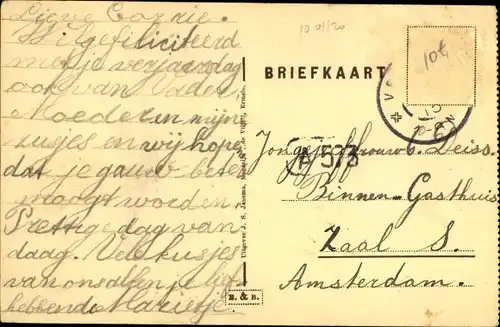 Lieve Corrie.
Wel gefiliciteerd
met je verjaardag
ook van Vader,
Moeder en mijn
zusjes en wij hopen
dat je gauw beter
moogt worden.
Prettige dag van
daag. Vele kusjes
van ons allen je lief
hebbende Marietje.
Uitgever J. S. Jansma,
Ermelo.
R. & B.
BRIEFKAART
104
A 573
Jongejuffrouw C. Deiss.
Binnen-Gasthuis
Zaal S.
Amsterdam.